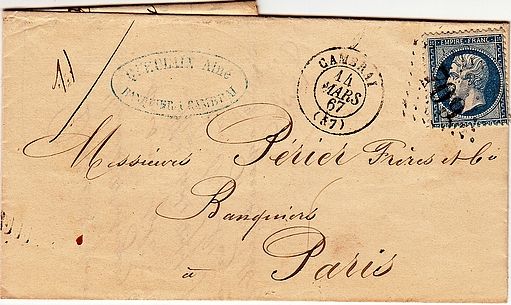 Aîné
BANQUIER À CAMBRAI
CAMBRAI
14
MARS
67
(57)
EMPIRE FRANC
Messieurs Périer Frères et Cie
Banquiers
à Paris